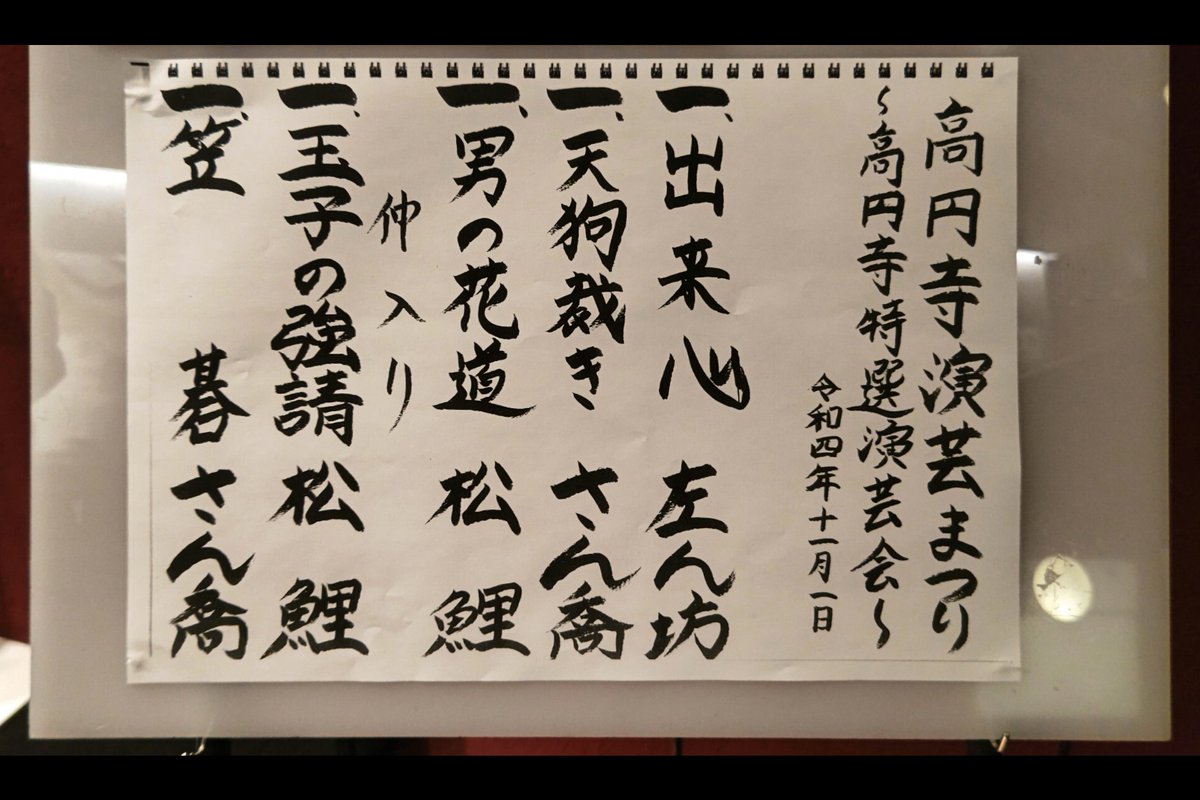 高円寺演芸まつり
~高円寺特選演芸会~
令和四年十一月一日
一、出来心 左ん坊
一、天狗裁き さん喬
一、男の花道 松鯉
仲入り
一、玉子の強請 松鯉
一、笠碁 さん喬